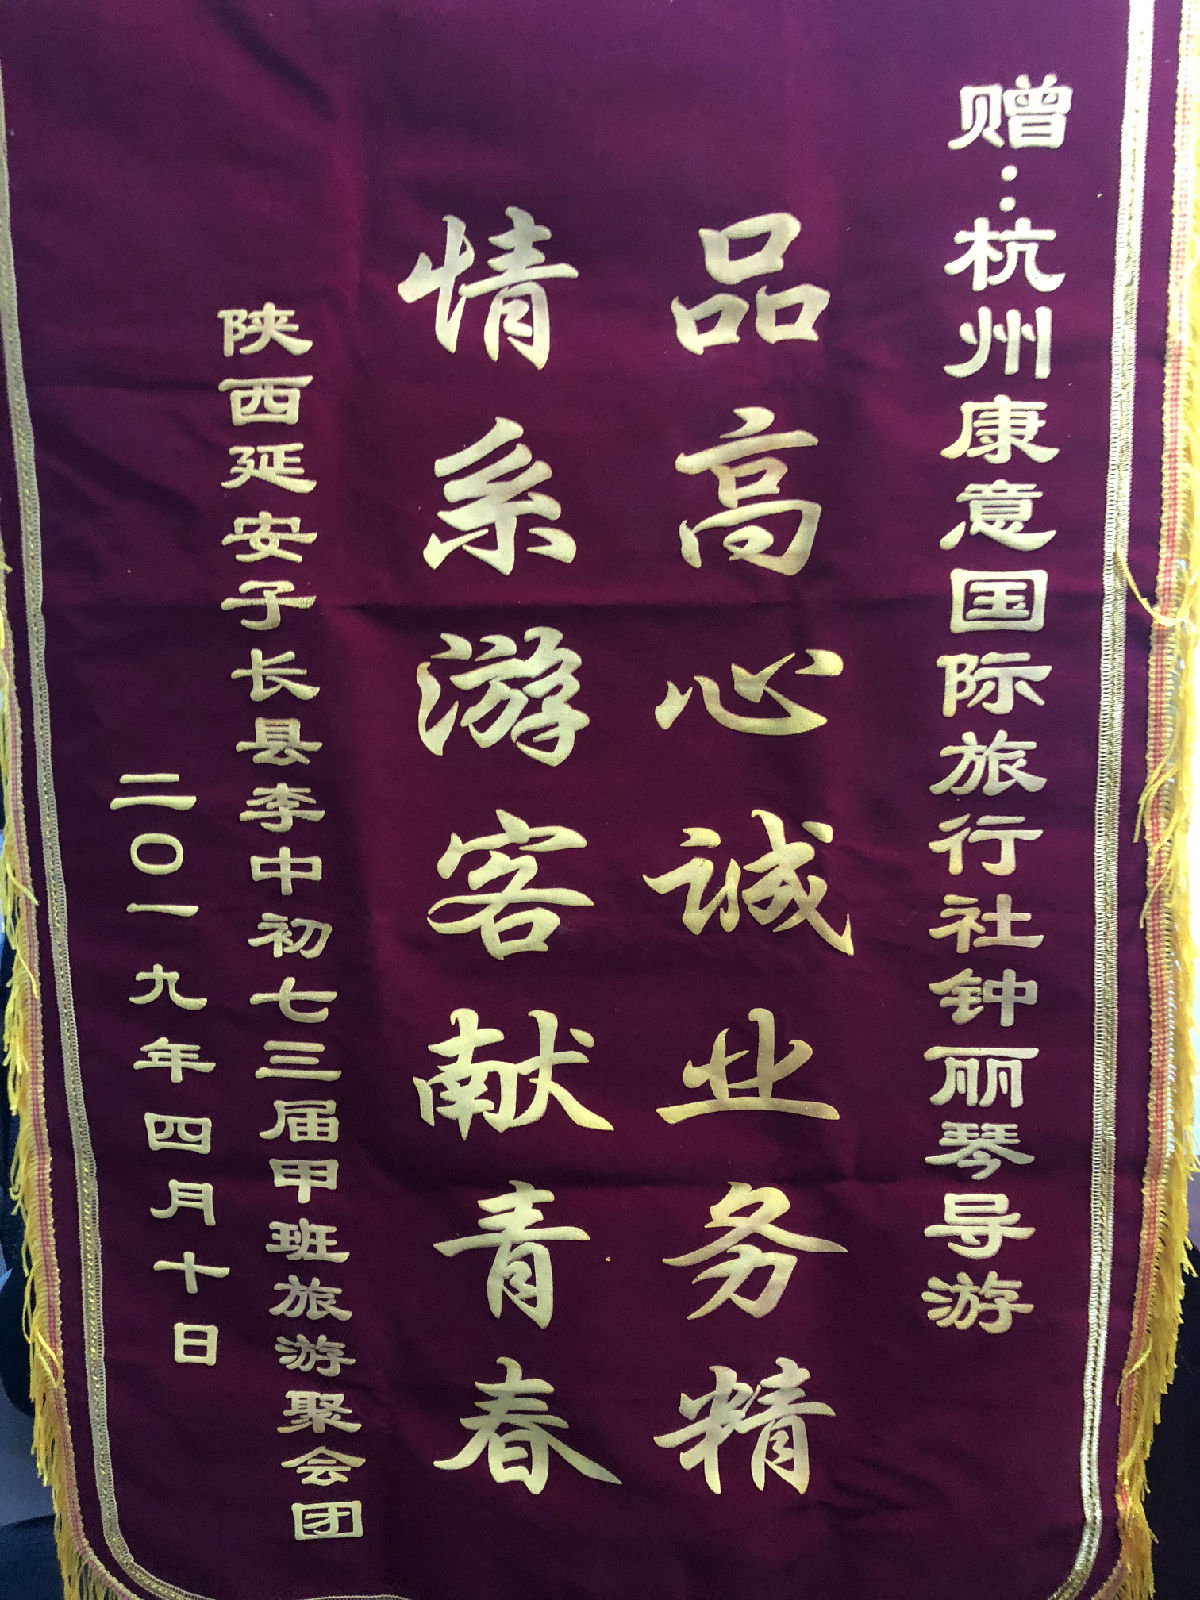 赠：杭州康意国际旅行社钟丽琴导游
品高心诚业务精
情系游客献青春
陕西延安子长县李中初七三届甲班旅游聚会团
二〇一九年四月十日